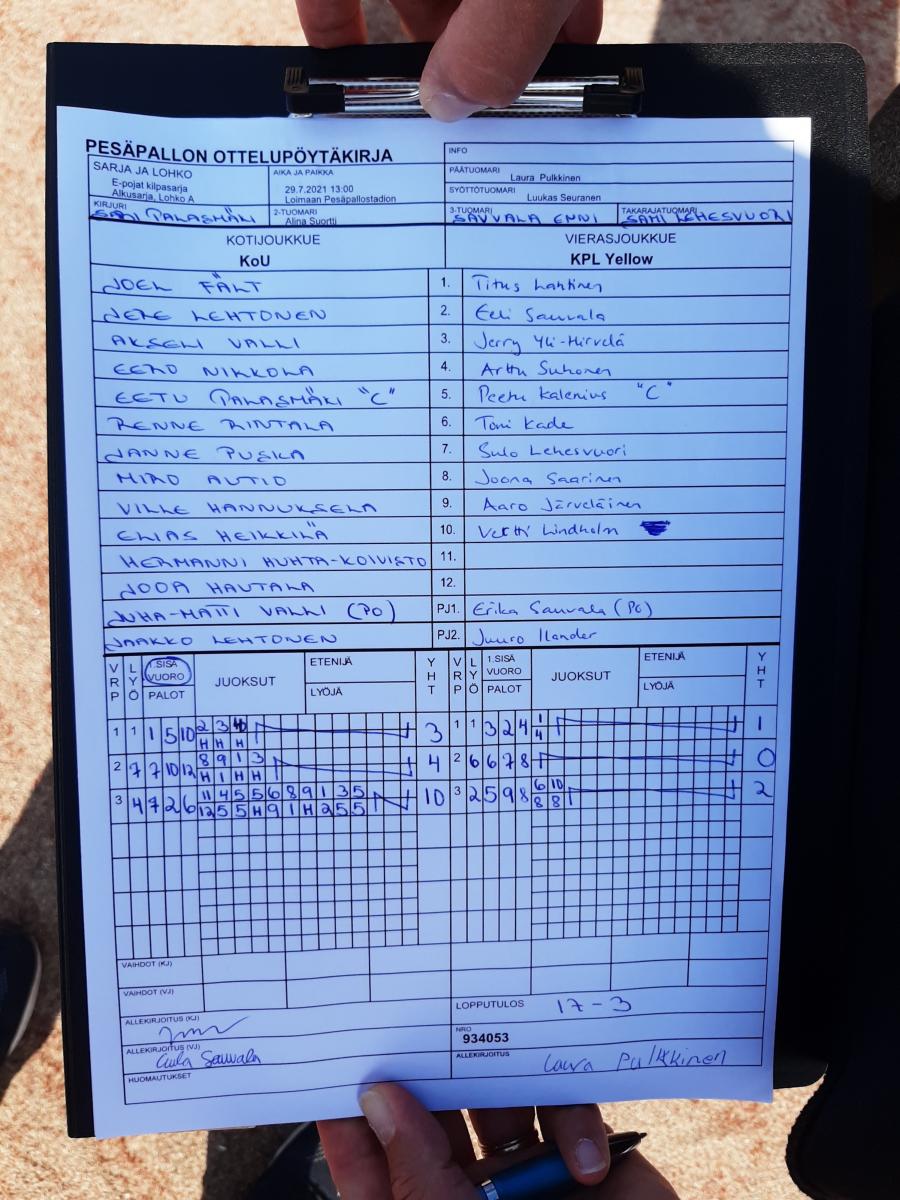 PESÄPALLON OTTELUPÖYTÄKIRJA
SARJA JA LOHKO
E-pojat kilpasarja
Alkusarja, Lohko A
AIKA JA PAIKKA
29.7.2021 13:00
Loimaan Pesäpallostadion
INFO
PÄÄTUOMARI
Laura Pulkkinen
SYÖTTÖTUOMARI
Luukas Seuranen
KIRJURI
SAMI PALASMÄKI
2-TUOMARI
Alina Suortti
3-TUOMARI
SAUVALA ENNI
TAKARAJATUOMARI
SAMI LEHESVUORI
KOTIJOUKKUE
KoU
VIERASJOUKKUE
KPL Yellow
JOEL FÄLT 1. Titus Lahtinen
JERE LEHTONEN 2. Eeli Sauvala
AKSELI VALLI 3. Jerry Yli-Hirvelä
EERO NIKKOLA 4. Arttu Suhonen
EETU PALASMÄKI "C" 5. Peetu Kalenius "C"
RENNE RINTALA 6. Toni Kade
JANNE PUSKA 7. Sulo Lehesvuori
MIRO AUTIO 8. Joona Saarinen
VILLE HANNUKSELA 9. Aaro Järveläinen
ELIAS HEIKKILÄ 10. Vertti Lindholm
HERMANNI HUHTA-KOIVISTO 11.
JOOA HAUTALA 12.
JUHA-MATTI VALLI (PO) PJ1. Erika Sauvala (PO)
JAAKKO LEHTONEN PJ2. Juuro Ilander
VRP LYÖ 1.SISÄ VUORO PALOT JUOKSUT ETENIJÄ LYÖJÄ YHT VRP LYÖ 1.SISÄ VUORO PALOT JUOKSUT ETENIJÄ LYÖJÄ YHT
1 1 1 5 10 2 3 3 1 1 3 2 4 1 1
H H H 4
2 7 7 10 12 8 9 1 3 4 2 6 6 7 8 0
H 1 H H
3 4 7 2 6 11 4 5 5 6 8 9 1 3 5 10 3 2 5 9 8 6 10 2
12 5 5 H 9 1 H 2 5 5 8 8
VAIHDOT (KJ)
VAIHDOT (VJ)
ALLEKIRJOITUS (KJ)
LOPPUTULOS 17-3
NRO
934053
ALLEKIRJOITUS (VJ)
Sauvala
ALLEKIRJOITUS
Laura Pulkkinen
HUOMAUTUKSET